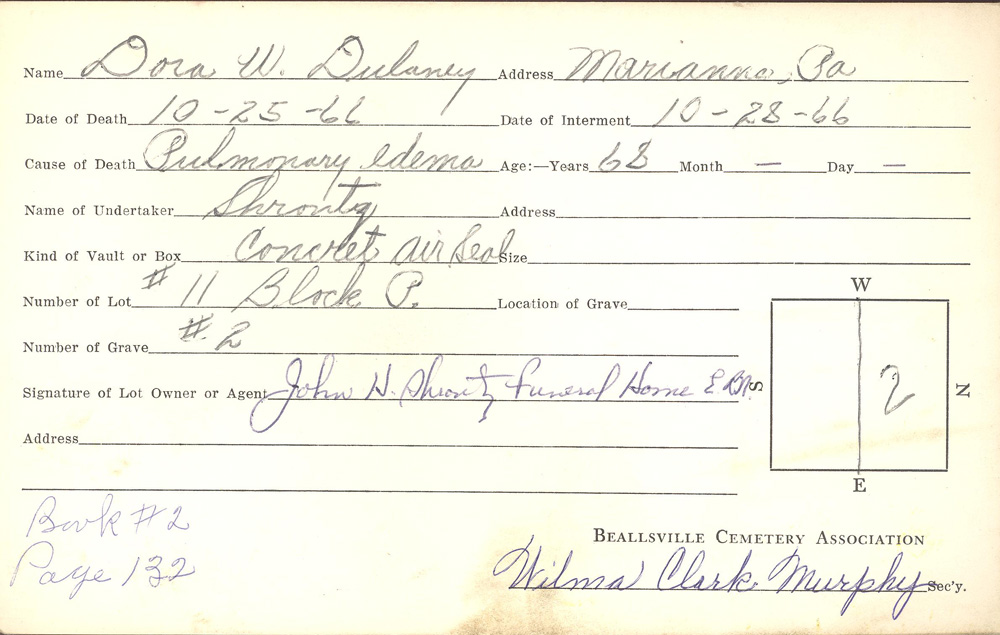 Name Dora W. Dulaney Address Marianna, Pa
Date of Death 10-25-66 Date of Interment 10-28-66
Cause of Death Pulmonary edema Age:—Years 68 Month — Day —
Name of Undertaker Shrontz Address
Kind of Vault or Box Concret Air Seal Size
Number of Lot # 11 Block P. Location of Grave
Number of Grave #. 2
W
S 2 N
E
Signature of Lot Owner or Agent John H. Shrontz Funeral Home
Address
Book #2
Page 132
Beallsville Cemetery Association
Wilma Clark Murphy Sec'y.